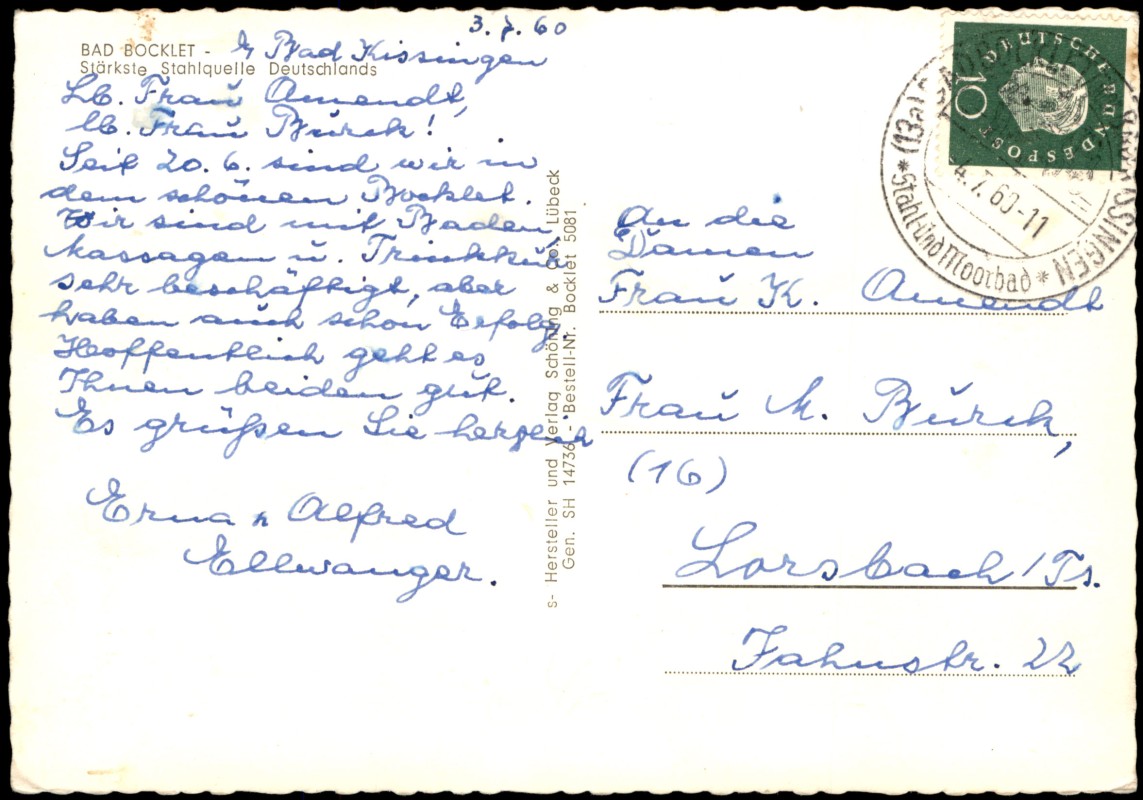 3.7.60
BAD BOCKLET - b/ Bad Kissingen
Stärkste Stahlquelle Deutschlands
Lb. Frau Amendt,
lb. Frau Burck!
Seit 20.6. sind wir in
dem schönen Bocklet.
Wir sind mit Baden,
Massagen u. Trinkkur
sehr beschäftigt, aber
haben auch schon Erfolg.
Hoffentlich geht es
Ihnen beiden gut.
Es grüßen Sie herzlich
Erna u. Alfred
Ellwanger.
s- Hersteller und Verlag Schöning & Co., Lübeck
Gen. SH 14736 - Bestell-Nr. Bocklet 5081
DEUTSCHE BUNDESPOST
10
(13a) BAD BOCKLET
KISSINGEN
4.7.60-11
*Stahl-und Moorbad*
An die
Damen
Frau K. Amendt
Frau M. Burck,
(16)
Lorsbach/Ts.
Jahnstr. 22